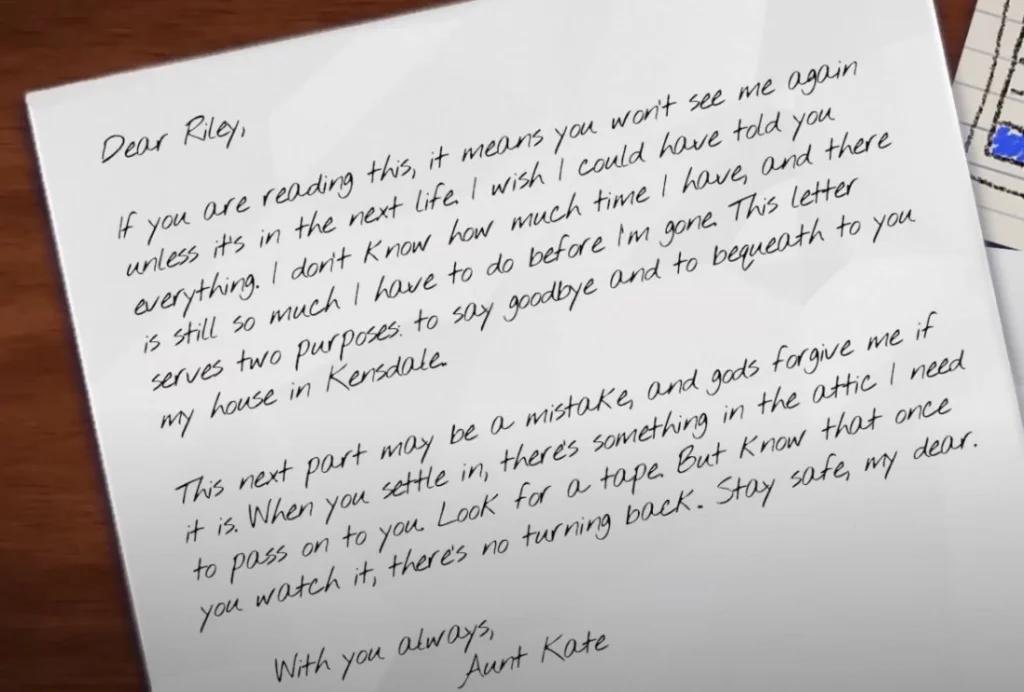 Dear Riley,
If you are reading this, it means you won't see me again
unless it's in the next life. I wish I could have told you
everything. I don't know how much time I have, and there
is still so much I have to do before I'm gone. This letter
serves two purposes: to say goodbye and to bequeath to you
my house in Kensdale.
This next part may be a mistake, and gods forgive me if
it is. When you settle in, there's something in the attic I need
to pass on to you. Look for a tape. But know that once
you watch it, there's no turning back. Stay safe, my dear.
With you always,
Aunt Kate